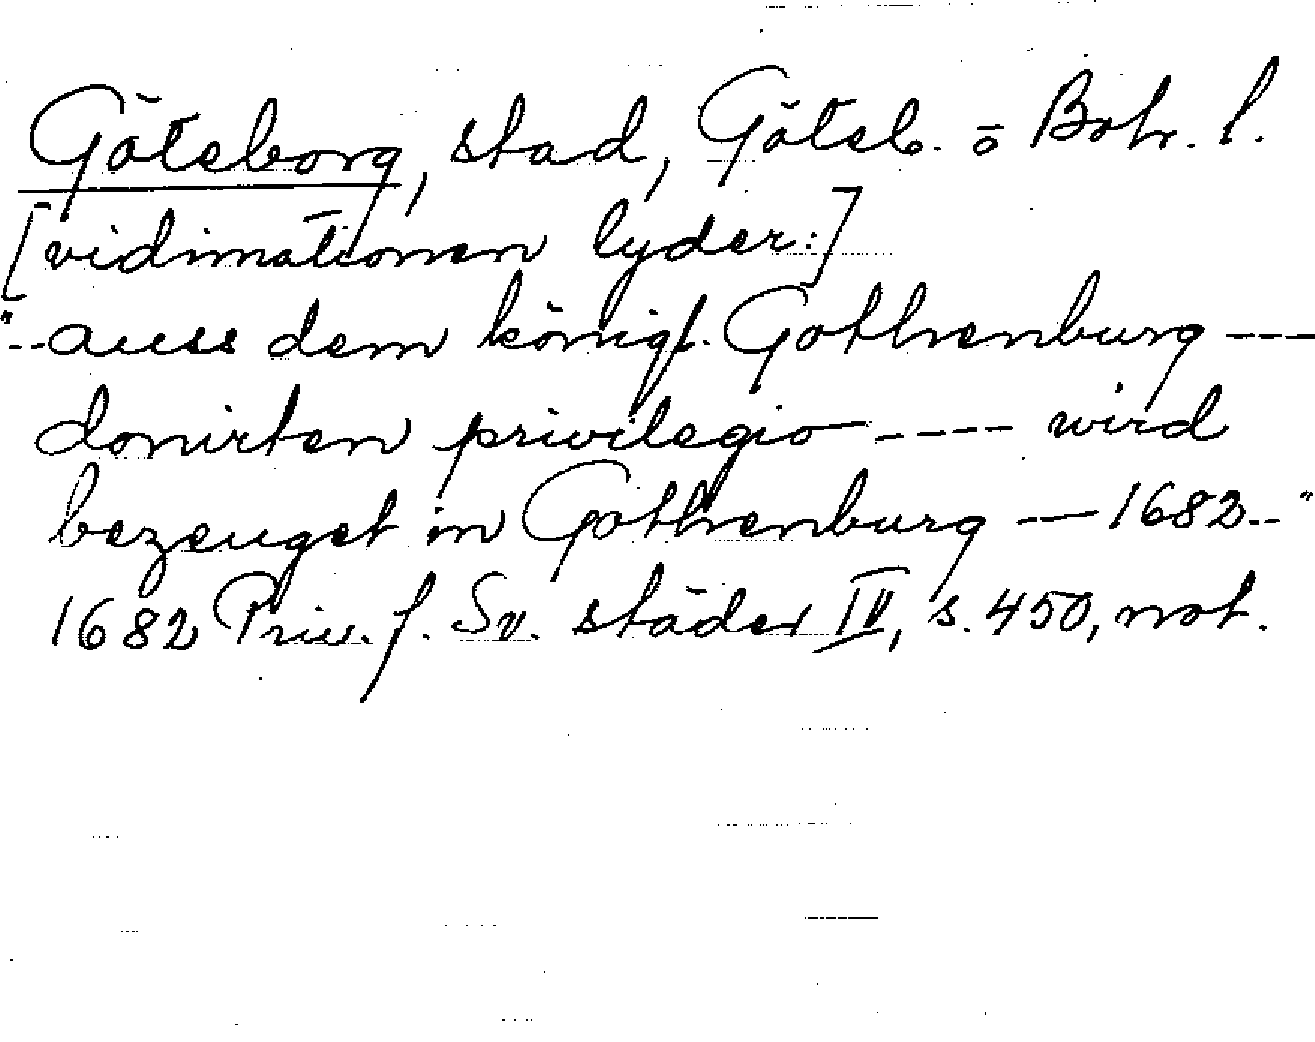 Göteborg, stad, Göteb. o Boh. l.
[vidimationen lyder:]
"--auss dem königl. Gothenburg ---
donirten privilegio ---- wird
bezeuget in Gothenburg -- 1682--"
1682 Priv. f. Sv. städer IV, s. 450, not.